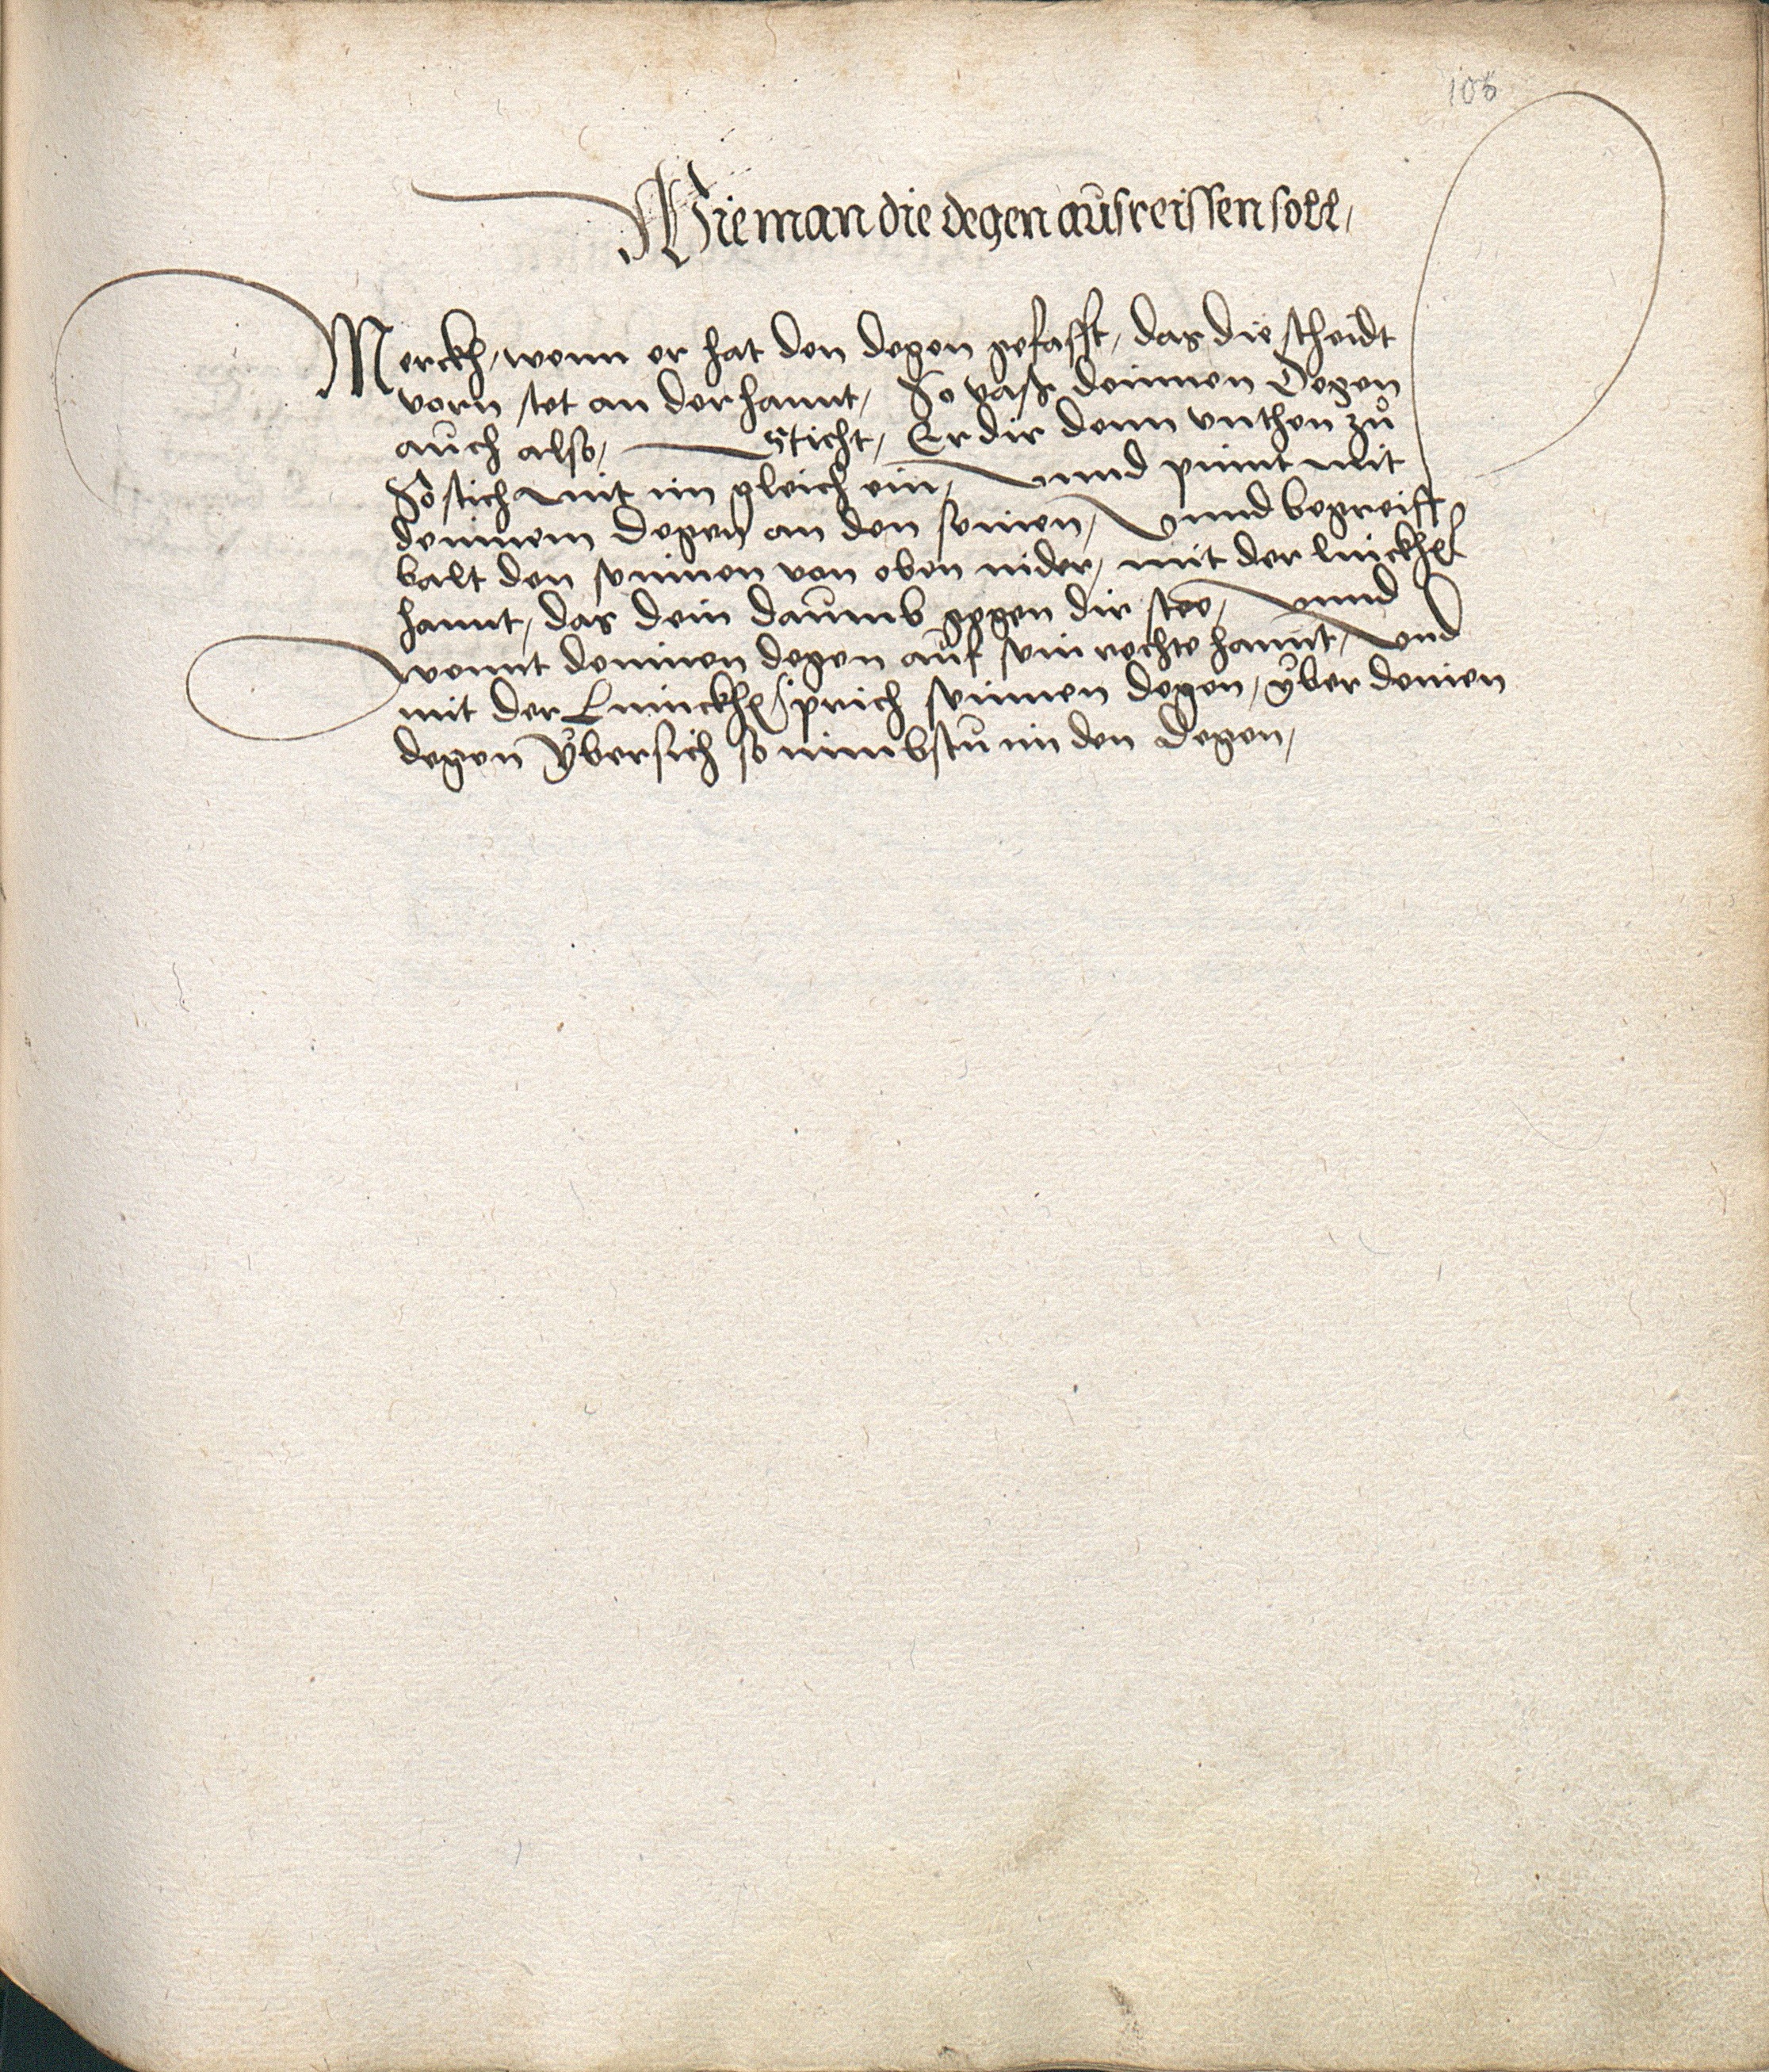 106
Wie man die degen aůsreissen soll,
Merckh, wenn er hat den degen gefasst, das die scheidt
vorn stet an der hannt, So vaß deinnen Degen
aůch also, Sticht, Er dir denn vnthen zů
So stich mit im gleich ein, vnnd pinnt mit
deinnem Degen an den seinen, vnnd begreiff
balt den seinnen von oben nider, mit der linckhen
hannt, das dein daůmb gegen dir stee, vnnd
wennt deinnen degen aůf sein rechte hannt, vnd
mit der Linnckhen prich seinnen degen, ÿber deinen
degen ÿbersich so nimbstů im den Degen,